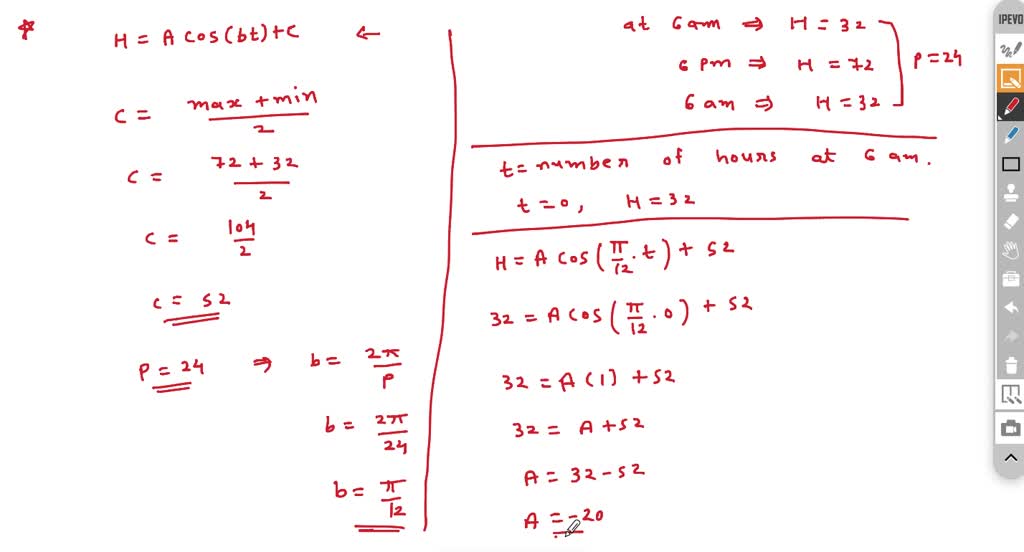 H = A cos(bt) + C ←
C = max + min / 2
C = 72 + 32 / 2
C = 104 / 2
C = 52
P = 24 ⇒ b = 2π / P
b = 2π / 24
b = π / 12
at 6am ⇒ H = 32
6 pm ⇒ H = 72
6 am ⇒ H = 32
P = 24
t = number of hours at 6 am.
t = 0, H = 32
H = A cos(π/12 · t) + 52
32 = A cos(π/12 · 0) + 52
32 = A (1) + 52
32 = A + 52
A = 32 - 52
A = -20
IPEVO